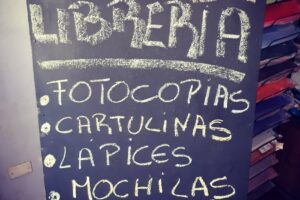 LIBRERÍA
FOTOCOPIAS
CARTULINAS
LÁPICES
MOCHILAS